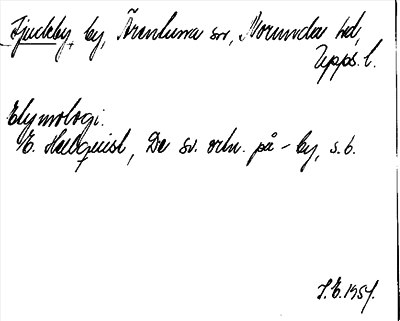 Fjuckby, by, Ärentuna sn, Norunda hd,
Upps. l.
Etymologi.
E. Hellquist, De sv. ortn. på -by, s. 6.
J.E. 1954.